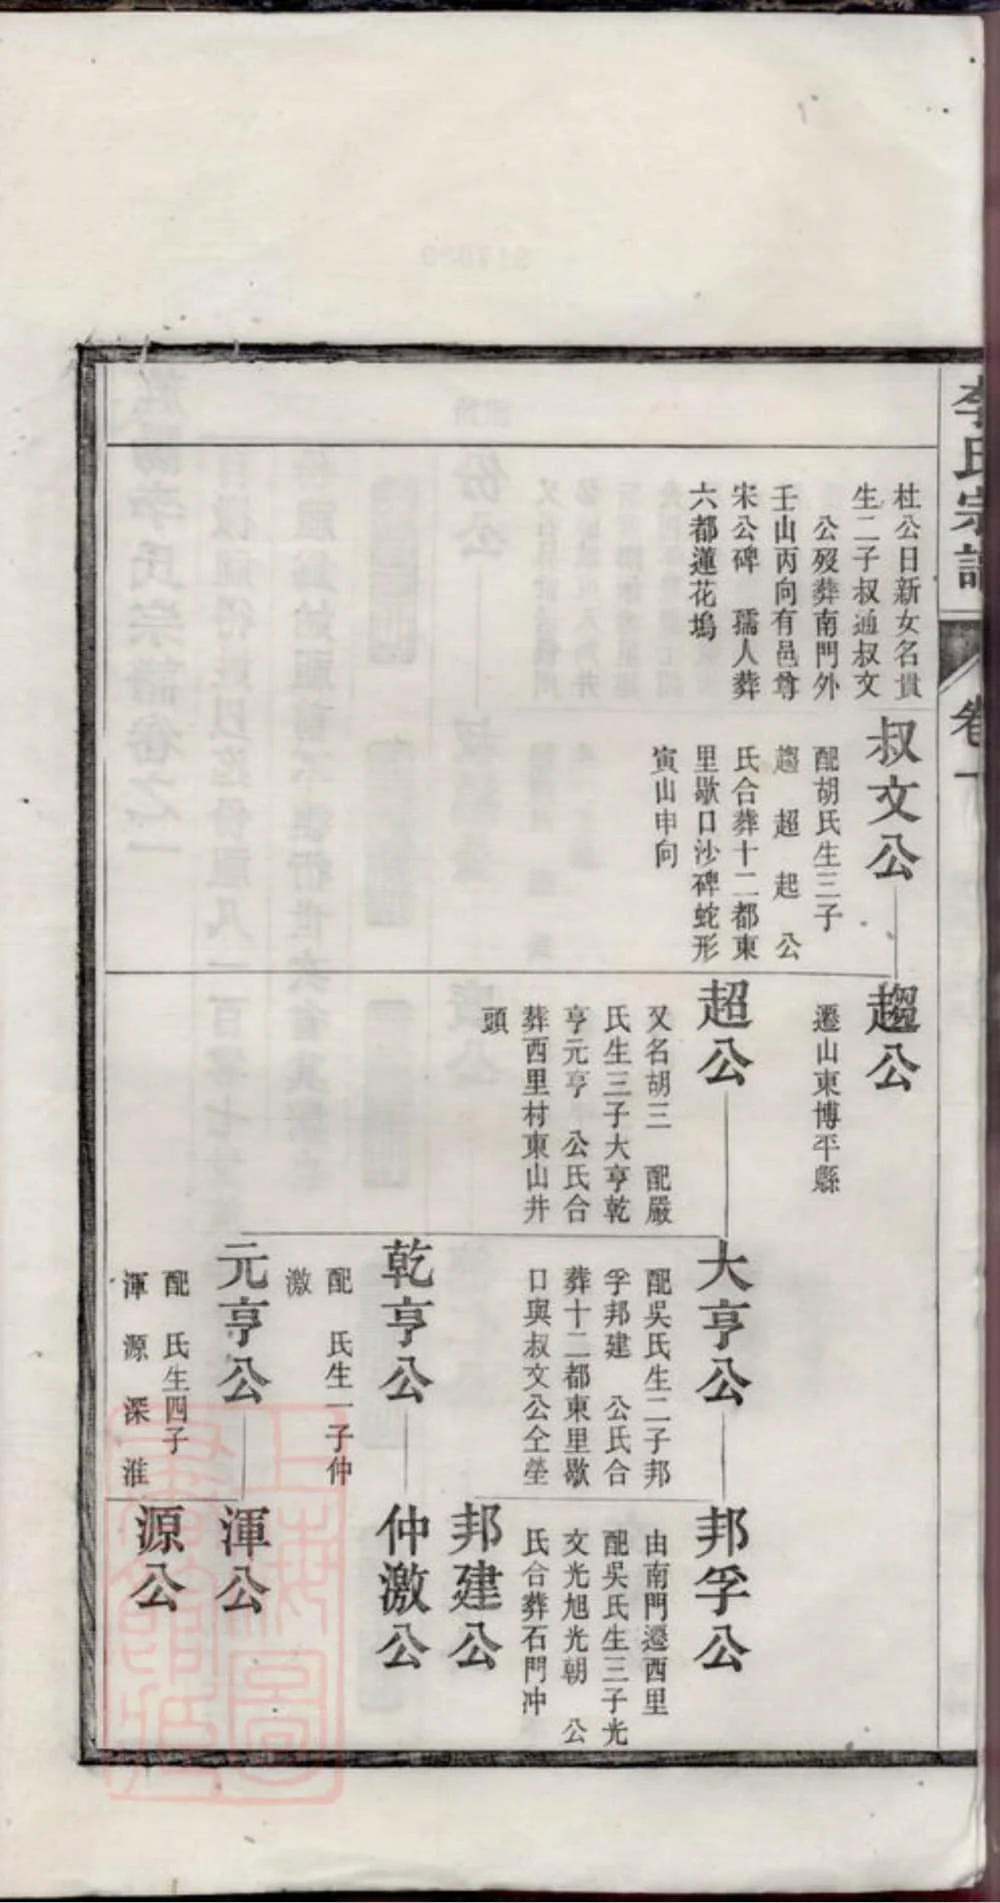 李氏宗譜
卷一
杜公日新女名貫
生二子叔通叔文
公歿葬南門外
壬山丙向有邑尊
宋公碑　孺人葬
六都蓮花塢
叔文公
配胡氏生三子
趨　超　起　公
氏合葬十二都東
里歇口沙碑蛇形
寅山申向
趨公
遷山東博平縣
超公
又名胡三　配嚴
氏生三子大亨乾
亨元亨　公氏合
葬西里村東山井
頭
大亨公
配吳氏生二子邦
孚邦建　公氏合
葬十二都東里歇
口與叔文公仝塋
乾亨公
配　氏生一子仲
激
元亨公
配　氏生四子
渾　源　深　淮
邦孚公
由南門遷西里
配吳氏生三子光
文光旭光朝　公
氏合葬石門冲
邦建公
仲激公
渾公
源公
上海圖書館藏